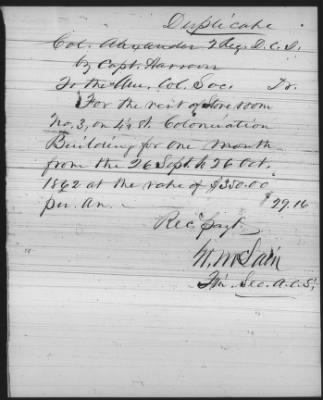 Duplicate
Col. Alexander 2 Reg. D.C.V.
by Capt. Harrover
To the Am. Col. Soc. Dr.
For the rent of Store room
No. 3, on 4½ st. Colonization
Building for one month
from the 26 Sept. to 26 Oct.
1862 at the rate of $350.00
per. An. - $29.16
Rec'd payt.
W. McLain
Fin. Sec. A.C.S.